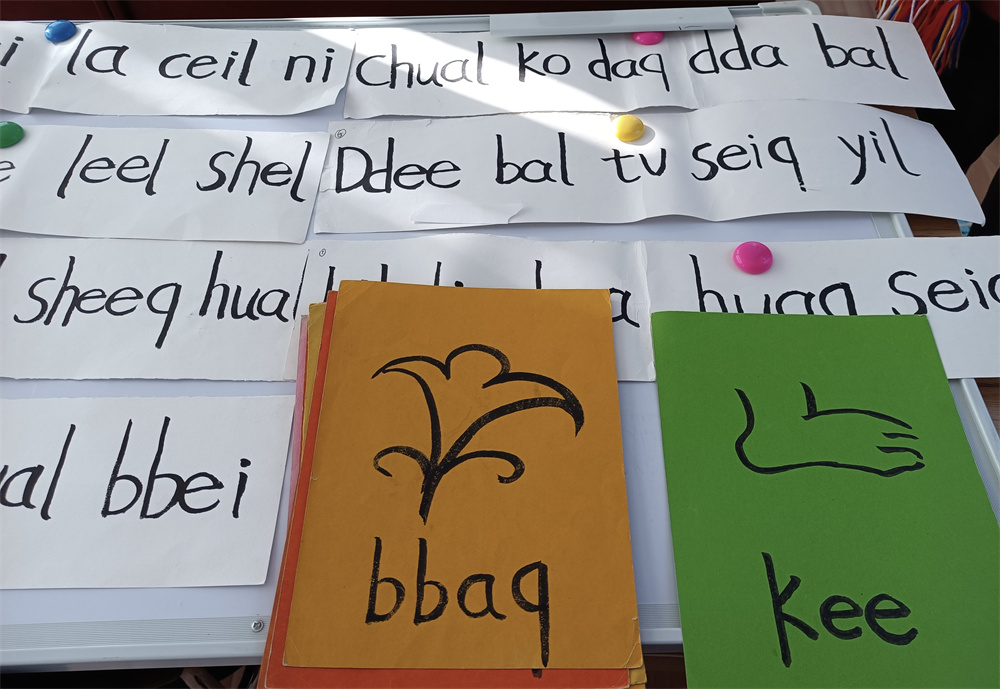 la ceil ni chual ko daq dda bal
leel shel Ddee bal tv seiq yil
sheeq hual huaq
bbei
bbaq
kee